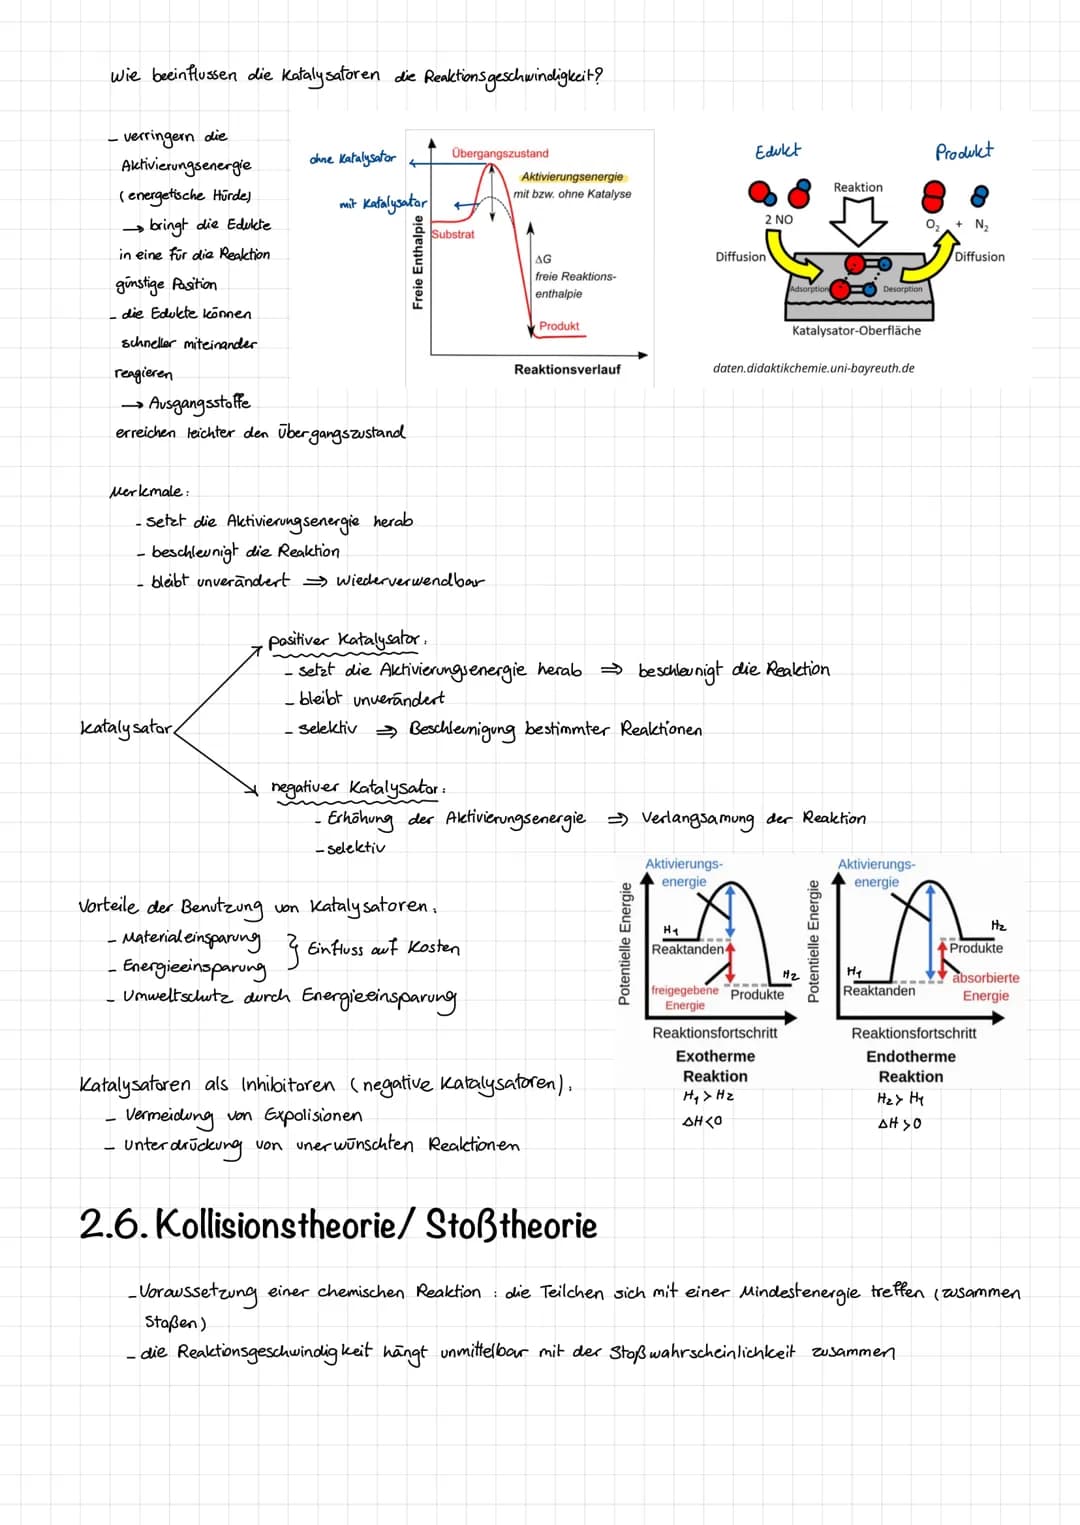 Wie beeinflussen die Katalysatoren die Reaktionsgeschwindigkeit?
- verringern die
Aktivierungsenergie
(energetische Hürde)
→ bringt die Edukte
in eine für die Reaktion
günstige Position
- die Edukte können
schneller miteinander
reagieren
→ Ausgangsstoffe
erreichen leichter den Übergangszustand
ohne Katalysator
mit Katalysator
Übergangszustand
Aktivierungsenergie
mit bzw. ohne Katalyse
Substrat
ΔG
freie Reaktions-
enthalpie
Produkt
Freie Enthalpie
Reaktionsverlauf
Edukt
Produkt
Reaktion
2 NO
O₂ + N₂
Diffusion
Diffusion
Adsorption
Desorption
Katalysator-Oberfläche
daten.didaktikchemie.uni-bayreuth.de
Merkmale:
- setzt die Aktivierungsenergie herab
- beschleunigt die Reaktion
- bleibt unverändert ⇒ Wiederverwendbar
Katalysator
positiver Katalysator:
- setzt die Aktivierungsenergie herab ⇒ beschleunigt die Reaktion
- bleibt unverändert
- selektiv ⇒ Beschleunigung bestimmter Reaktionen
negativer Katalysator:
- Erhöhung der Aktivierungsenergie ⇒ Verlangsamung der Reaktion
- selektiv
Vorteile der Benutzung von Katalysatoren:
- Materialeinsparung
- Energieeinsparung } Einfluss auf Kosten
- Umweltschutz durch Energieeinsparung
Aktivierungs-
energie
Potentielle Energie
H₁
Reaktanden
H₂
freigegebene
Energie
Produkte
Reaktionsfortschritt
Exotherme
Reaktion
H₁ > H₂
ΔH<0
Aktivierungs-
energie
Potentielle Energie
H₂
Produkte
H₁
Reaktanden
absorbierte
Energie
Reaktionsfortschritt
Endotherme
Reaktion
H₂ > H₁
ΔH >0
Katalysatoren als Inhibitoren (negative Katalysatoren):
- Vermeidung von Expolisionen
- Unterdrückung von unerwünschten Reaktionen
2.6. Kollisionstheorie/ Stoßtheorie
- Voraussetzung einer chemischen Reaktion : die Teilchen sich mit einer Mindestenergie treffen (zusammen
Stoßen)
- die Reaktionsgeschwindigkeit hängt unmittelbar mit der Stoßwahrscheinlichkeit zusammen